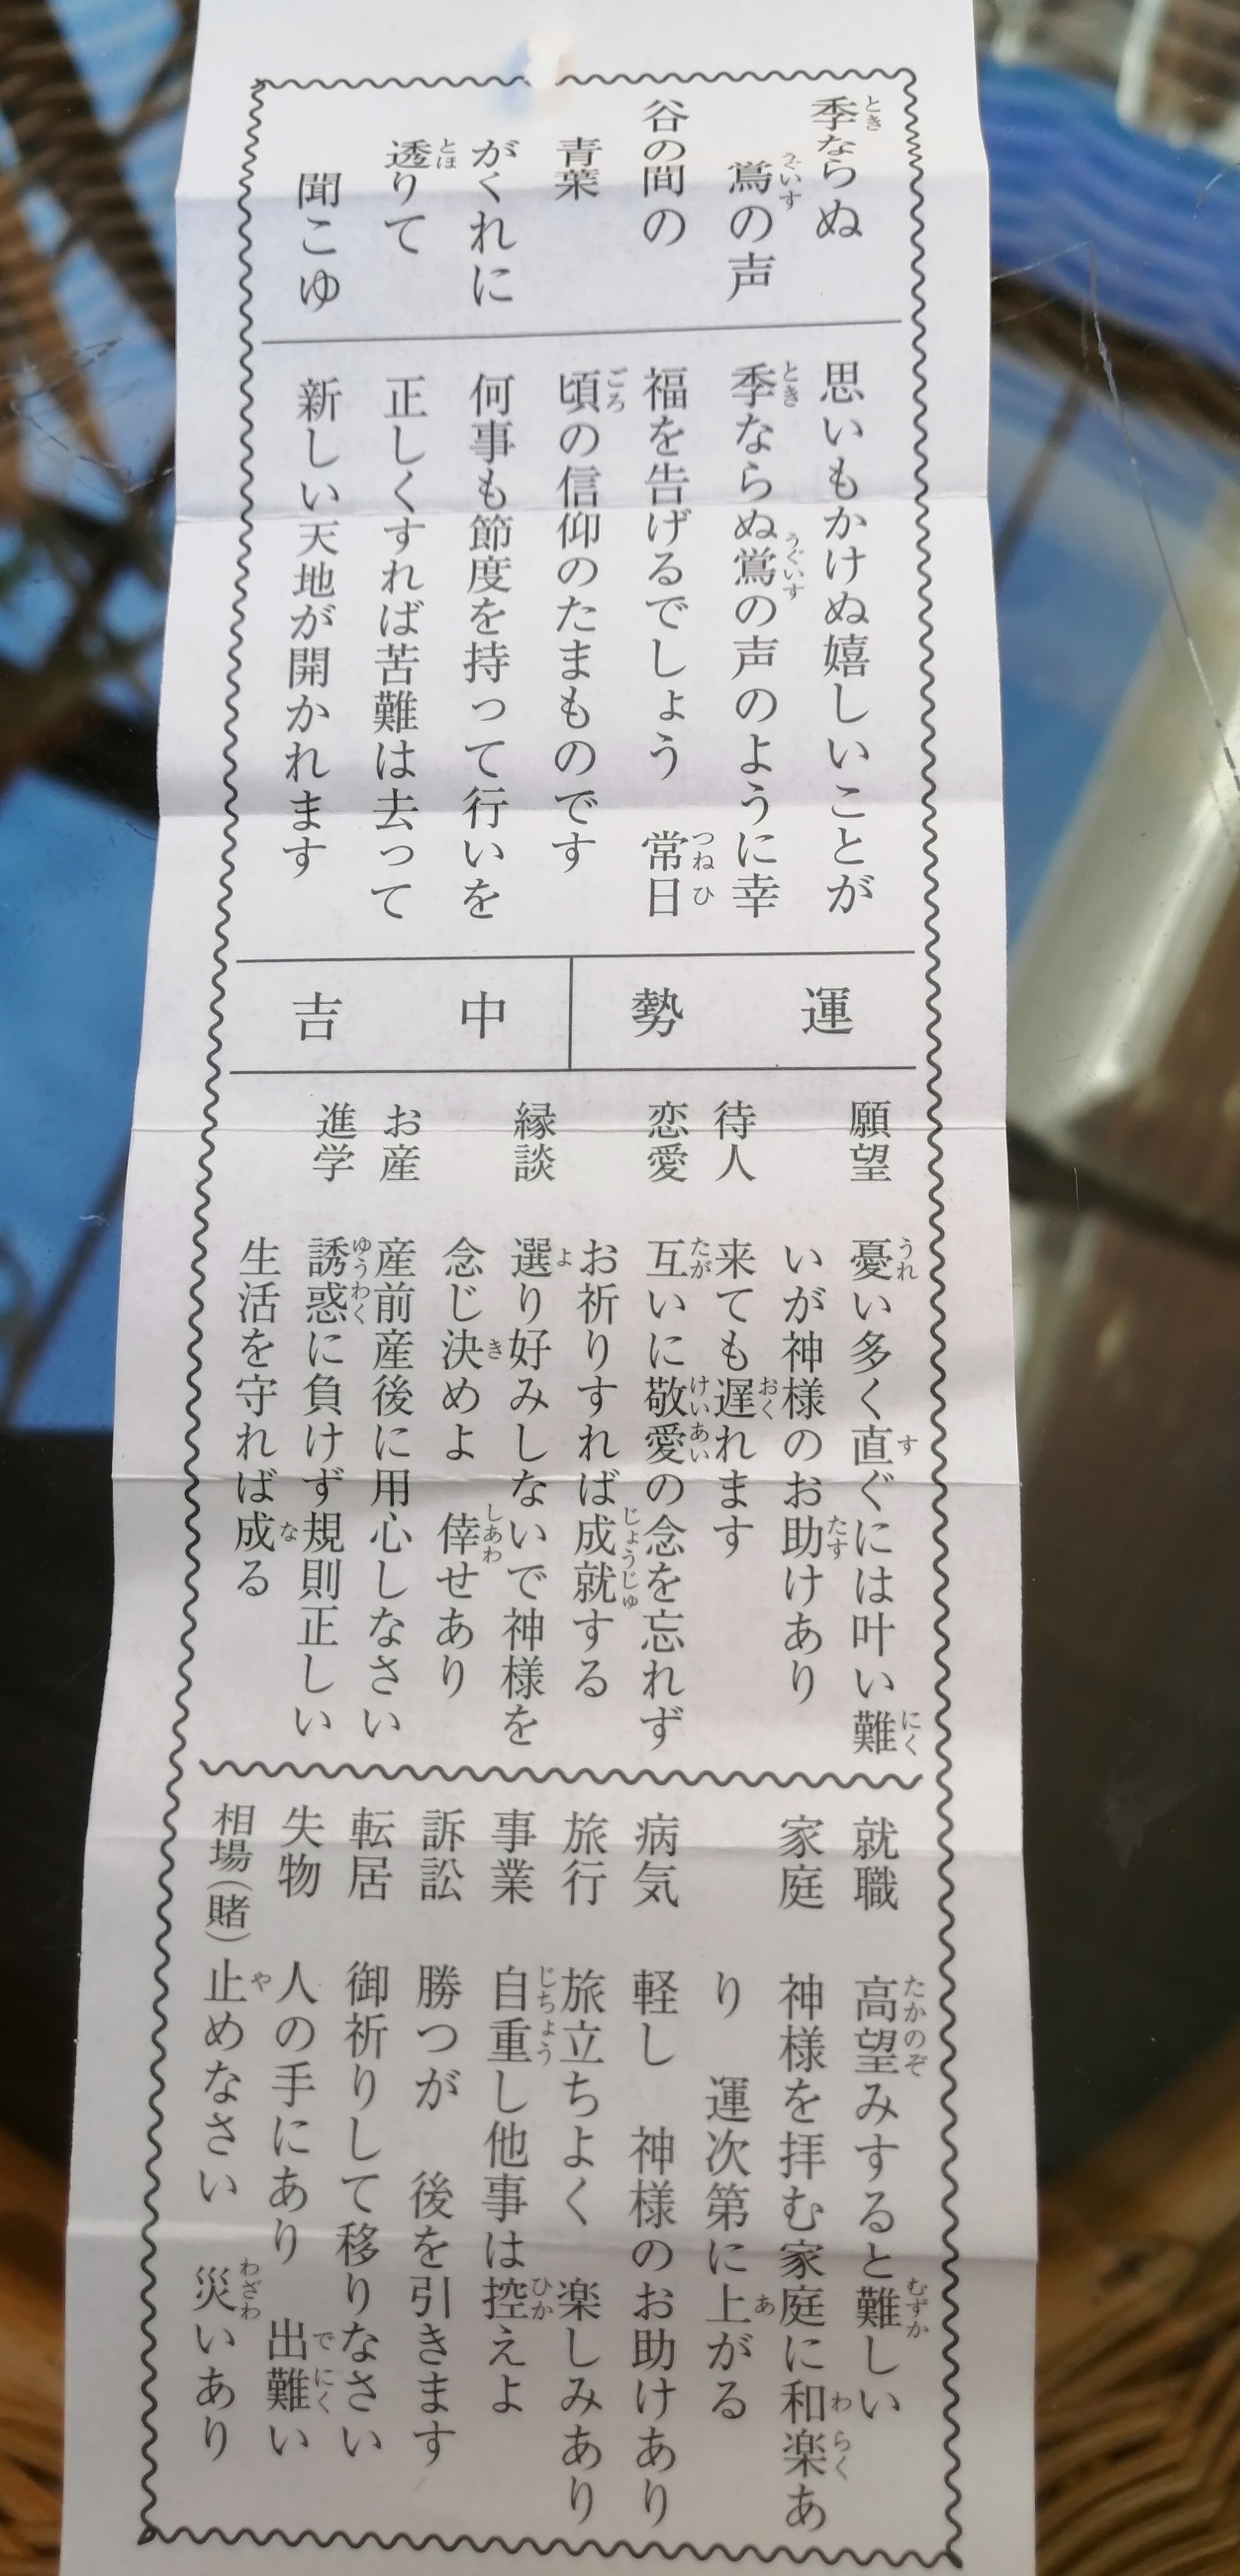 季ならぬ
鴬の声
谷の間の
青葉
がくれに
透りて
聞こゆ
思いもかけぬ嬉しいことが
季ならぬ鴬の声のように幸
福を告げるでしょう　常日
頃の信仰のたまものです
何事も節度を持って行いを
正しくすれば苦難は去って
新しい天地が開かれます
運勢
中吉
願望　憂い多く直ぐには叶い難
いが神様のお助けあり
待人　来ても遅れます
恋愛　互いに敬愛の念を忘れず
お祈りすれば成就する
縁談　選り好みしないで神様を
念じ決めよ　倖せあり
お産　産前産後に用心しなさい
進学　誘惑に負けず規則正しい
生活を守れば成る
就職　高望みすると難しい
家庭　神様を拝む家庭に和楽あ
り　運次第に上がる
病気　軽し　神様のお助けあり
旅行　旅立ちよく　楽しみあり
事業　自重し他事は控えよ
訴訟　勝つが　後を引きます
転居　御祈りして移りなさい
失物　人の手にあり　出難い
相場（賭）　止めなさい　災いあり